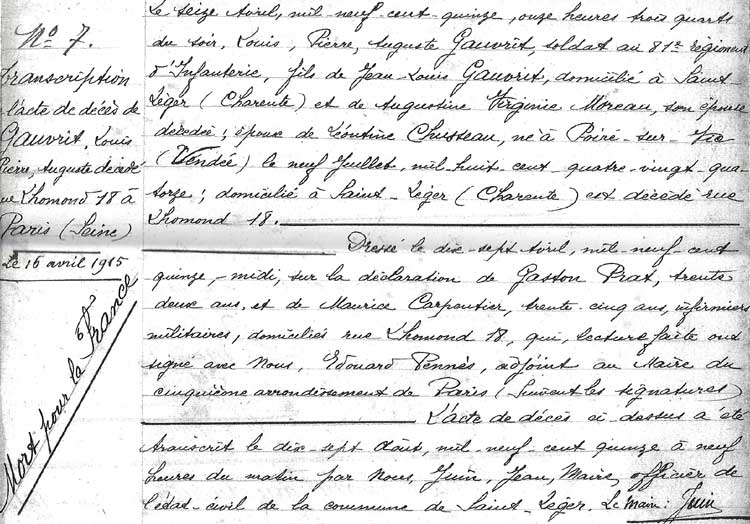 No 7.
Transcription
l'acte de décès de
Gauvrit, Louis
Pierre, Auguste décédé
rue Lhomond 18 à
Paris (Seine)
Le 16 avril 1915
Mort pour la France
Le seize Avril, mil neuf cent quinze, onze heures trois quarts
du soir, Louis, Pierre, Auguste Gauvrit, soldat au 81e régiment
d'Infanterie, fils de Jean Louis Gauvrit, domicilié à Saint
Léger (Charente) et de Augustine Virginie Moreau, son épouse
décédée; époux de Léontine Chusseau, né à Poiré-sur-Vie
(Vendée) le neuf Juillet, mil huit cent quatre-vingt-qua-
torze; domicilié à Saint-Léger (Charente) est décédé rue
Lhomond 18.
Dressé le dix-sept Avril, mil-neuf-cent
quinze, midi, sur la déclaration de Gaston Prat, trente
deux ans, et de Maurice Carpentier, trente-cinq ans, infirmiers
militaires, domiciliés rue Lhomond 18, qui, lecture faite ont
signé avec Nous, Edouard Pennès, adjoint au Maire du
cinquième arrondissement de Paris (Suivent les signatures)
L'acte de décès ci-dessus a été
transcrit le dix-sept Août, mil neuf-cent quinze à neuf
heures du matin par Nous, Juin, Jean, Maire, officier de
l'état-civil de la commune de Saint-Léger. Le Maire: Juin